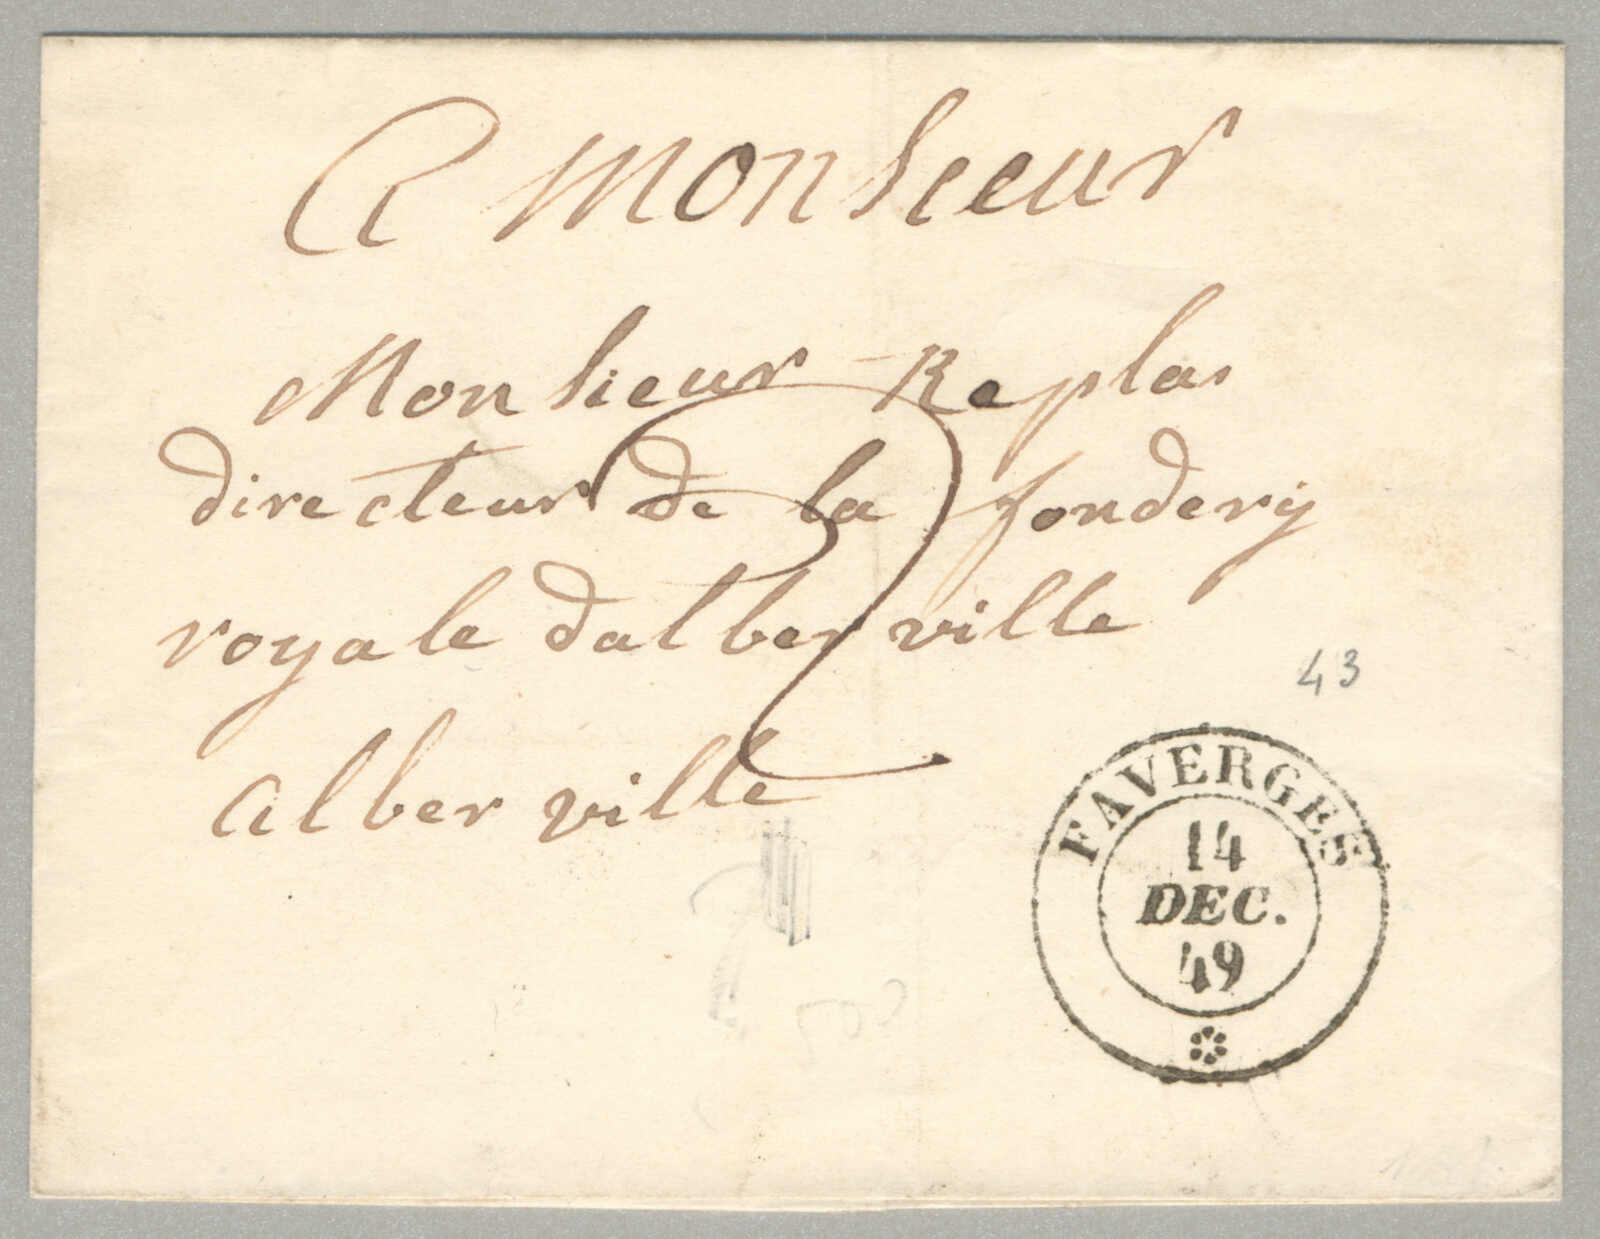 A Monsieur
Monsieur Replas
directeur de la fondery
royale dalberville
alberville
2
43
FAVERGES
14
DEC.
49